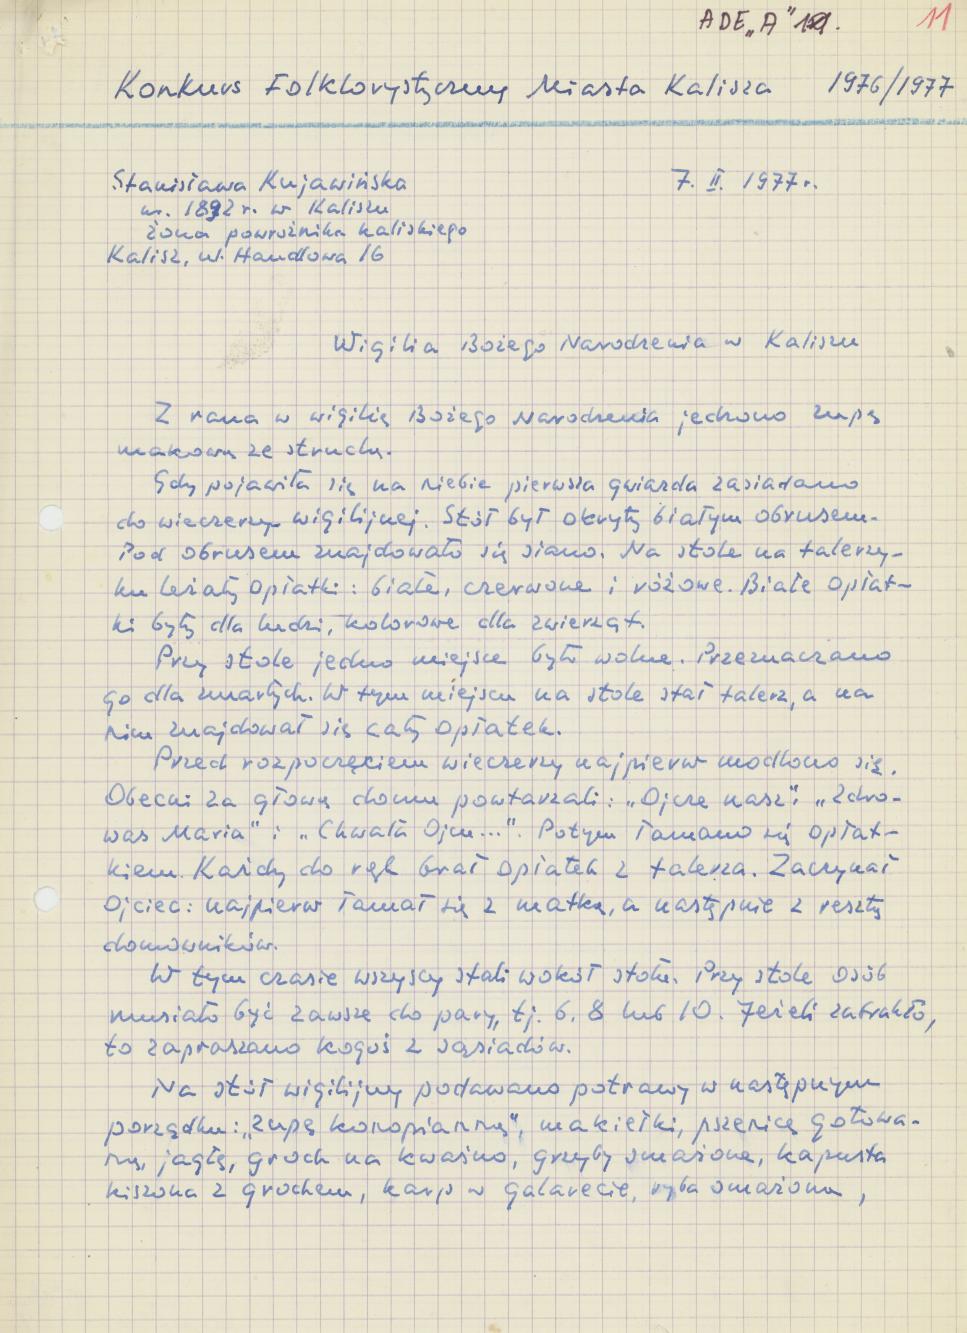 ADE „A"
11
Konkurs Folklorystyczny Miasta Kalisza 1976/1977
Stanisława Kujawińska 7. II. 1977 r.
ur. 1892 r. w Kaliszu
żona powroźnika kaliskiego
Kalisz, ul. Handlowa 16
Wigilia Bożego Narodzenia w Kaliszu
Z rana w wigilię Bożego Narodzenia jedzono zupę
makową ze struclą.
Gdy pojawiła się na niebie pierwsza gwiazda zasiadano
do wieczerzy wigilijnej. Stół był okryty białym obrusem.
Pod obrusem znajdowało się siano. Na stole na talerzy-
ku leżały opłatki: białe, czerwone i różowe. Białe opłat-
ki były dla ludzi, kolorowe dla zwierząt.
Przy stole jedno miejsce było wolne. Przeznaczano
go dla zmarłych. W tym miejscu na stole stał talerz, a na
nim znajdował się cały opłatek.
Przed rozpoczęciem wieczerzy najpierw modlono się.
Obecni za głową domu powtarzali: „Ojcze nasz", „Zdro-
waś Maria" i „Chwała Ojcu...". Potym łamano się opłat-
kiem. Każdy do ręk brał opłatek z talerza. Zaczynał
ojciec: najpierw łamał się z matką, a następnie z resztą
domowników.
W tym czasie wszyscy stali wokół stołu. Przy stole osób
musiało być zawsze do pary, tj. 6, 8 lub 10. Jeżeli zabrakło,
to zapraszano kogoś z sąsiadów.
Na stół wigilijny podawano potrawy w następnym
porządku: „zupę konopianną", makiełki, pszenicę gotowa-
ną, jagłę, groch na kwaśno, grzyby smażone, kapusta
kiszona z grochem, karp w galarecie, ryba smażona,